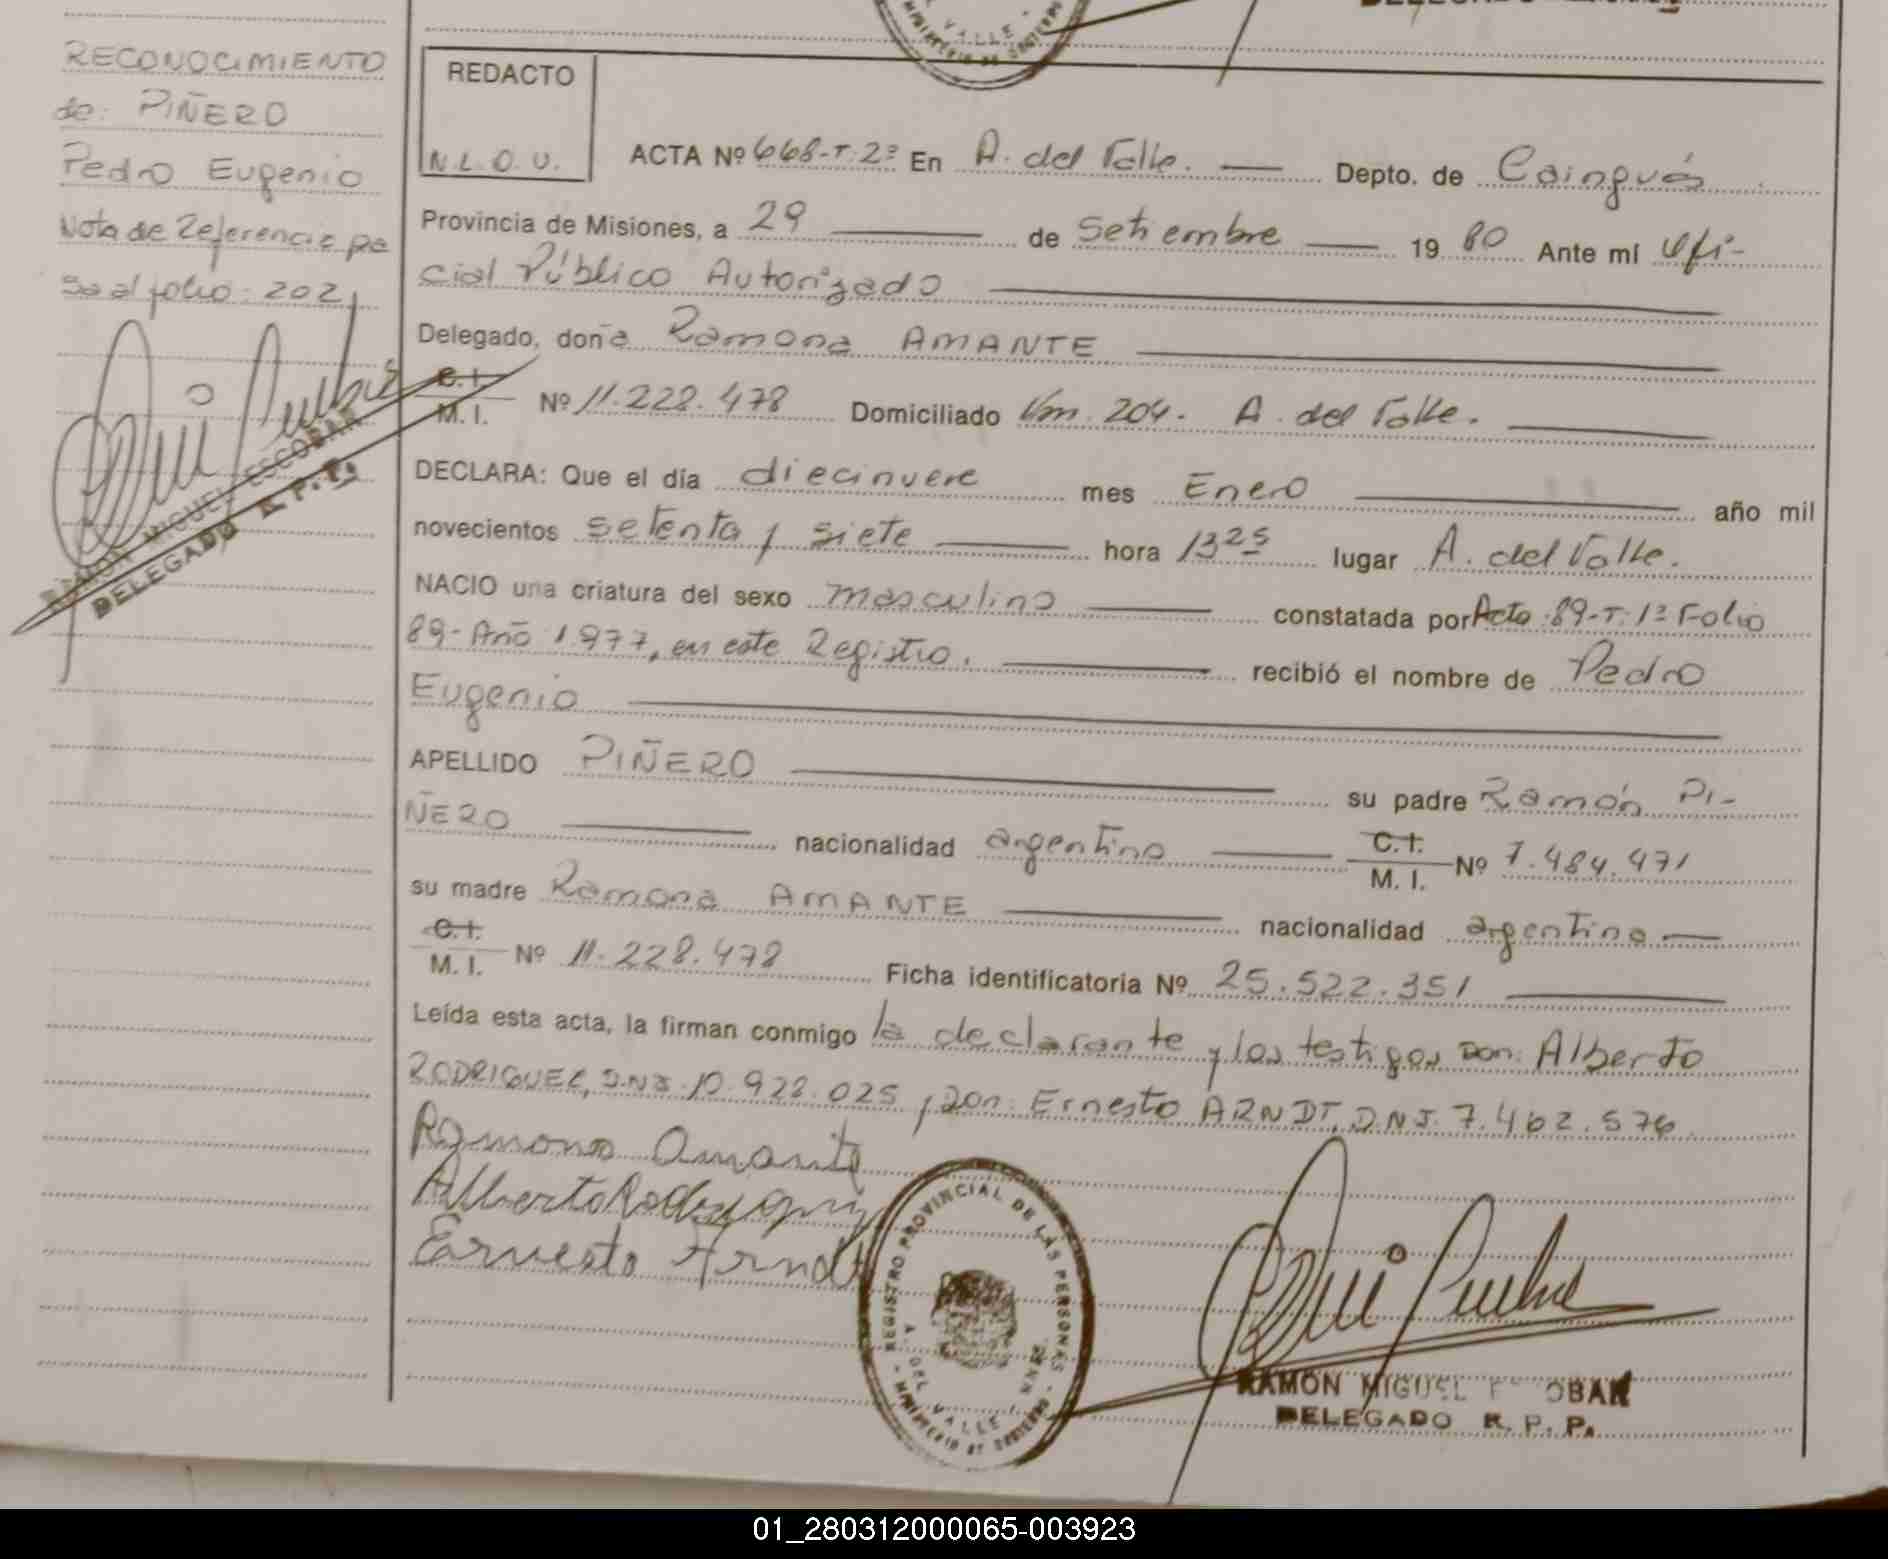 RECONOCIMIENTO
de: PIÑERO
Pedro Eugenio
Nota de Referencia pa
sa al folio: 202
RAMON MIGUEL ESCOBAR
DELEGADO R. P. P.
REDACTO
N.L.O.U.
ACTA Nº 668-T:2º En A. del Valle. Depto. de Cainguás
Provincia de Misiones, a 29 de Setiembre 19 80 Ante mí Ofi-
cial Público Autorizado
Delegado, doña Ramona AMANTE
C.I.
M. I. Nº 11.228.478 Domiciliado Km. 204. A. del Valle.
DECLARA: Que el día diecinueve mes Enero año mil
novecientos setenta y siete hora 13 25 lugar A. del Valle.
NACIO una criatura del sexo masculino constatada por Acta:89-T:1º Folio
89-Año:1.977, en este Registro. recibió el nombre de Pedro
Eugenio
APELLIDO PIÑERO su padre Ramón PI-
ÑERO nacionalidad argentino C.I.
M. I. Nº 7.484.471
su madre Ramona AMANTE nacionalidad argentina
C.I.
M. I. Nº 11.228.478 Ficha identificatoria Nº 25.522.351
Leída esta acta, la firman conmigo la declarante y los testigos Don: Alberto
RODRIGUEZ, D.N.I. 10.928.025 y Don: Ernesto ARNDT, D.N.I. 7.462.576
Ramona Amante
Alberto Rodriguez
Ernesto Arndt
REGISTRO PROVINCIAL DE LAS PERSONAS
A. DEL VALLE
MINISTERIO DE GOBIERNO
RAMON MIGUEL ESCOBAR
DELEGADO R. P. P.
01_280312000065-003923